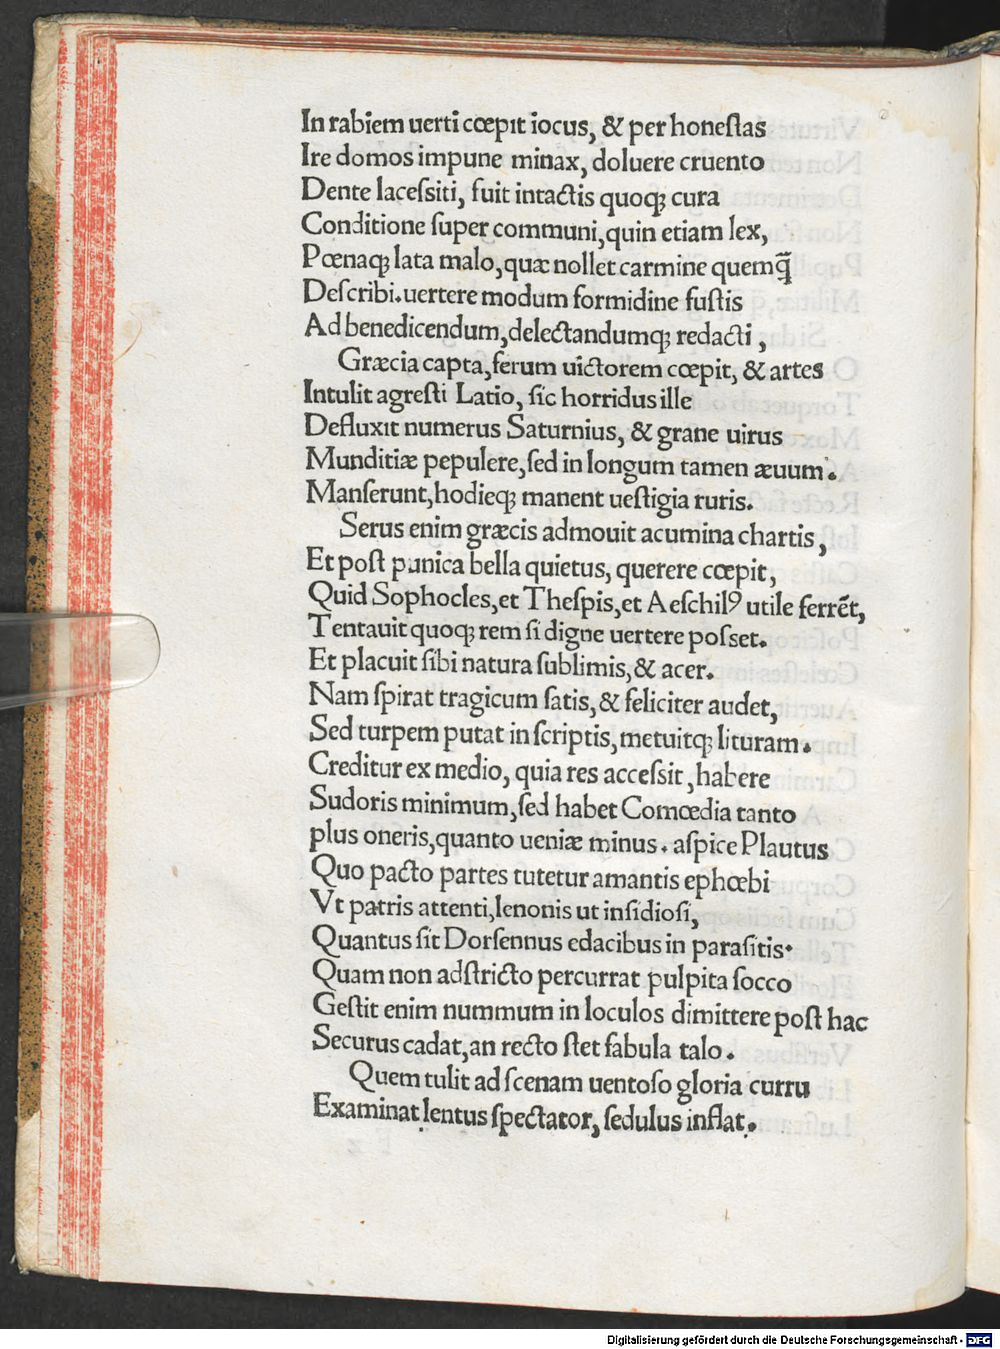 In rabiem uerti cœpit iocus, & per honeſtas
Ire domos impune minax, doluere cruento
Dente laceſsiti, fuit intactis quoq; cura
Conditione ſuper communi, quin etiam lex,
Pœnaq; lata malo, quæ nollet carmine quemq̃
Deſcribi. uertere modum formidine fuſtis
Ad benedicendum, delectandumq; redacti,
Græcia capta, ferum uictorem cœpit, & artes
Intulit agreſti Latio, ſic horridus ille
Defluxit numerus Saturnius, & graue uirus
Munditiæ pepulere, ſed in longum tamen æuum.
Manſerunt, hodieq; manent ueſtigia ruris.
Serus enim græcis admouit acumina chartis,
Et poſt punica bella quietus, querere cœpit,
Quid Sophocles, et Theſpis, et Aeſchilꝰ utile ferrẽt,
Tentauit quoq; rem ſi digne uertere poſset.
Et placuit ſibi natura ſublimis, & acer.
Nam ſpirat tragicum ſatis, & feliciter audet,
Sed turpem putat in ſcriptis, metuitq; lituram.
Creditur ex medio, quia res acceſsit, habere
Sudoris minimum, ſed habet Comœdia tanto
plus oneris, quanto ueniæ minus. aſpice Plautus
Quo pacto partes tutetur amantis ephœbi
Vt patris attenti, lenonis ut inſidioſi,
Quantus ſit Dorſennus edacibus in paraſitis.
Quam non adſtricto percurrat pulpita ſocco
Geſtit enim nummum in loculos dimittere poſt hac
Securus cadat, an recto ſtet fabula talo.
Quem tulit ad ſcenam uentoſo gloria curru
Examinat lentus ſpectator, ſedulus inflat.
Digitalisierung gefördert durch die Deutsche Forschungsgemeinschaft - DFG